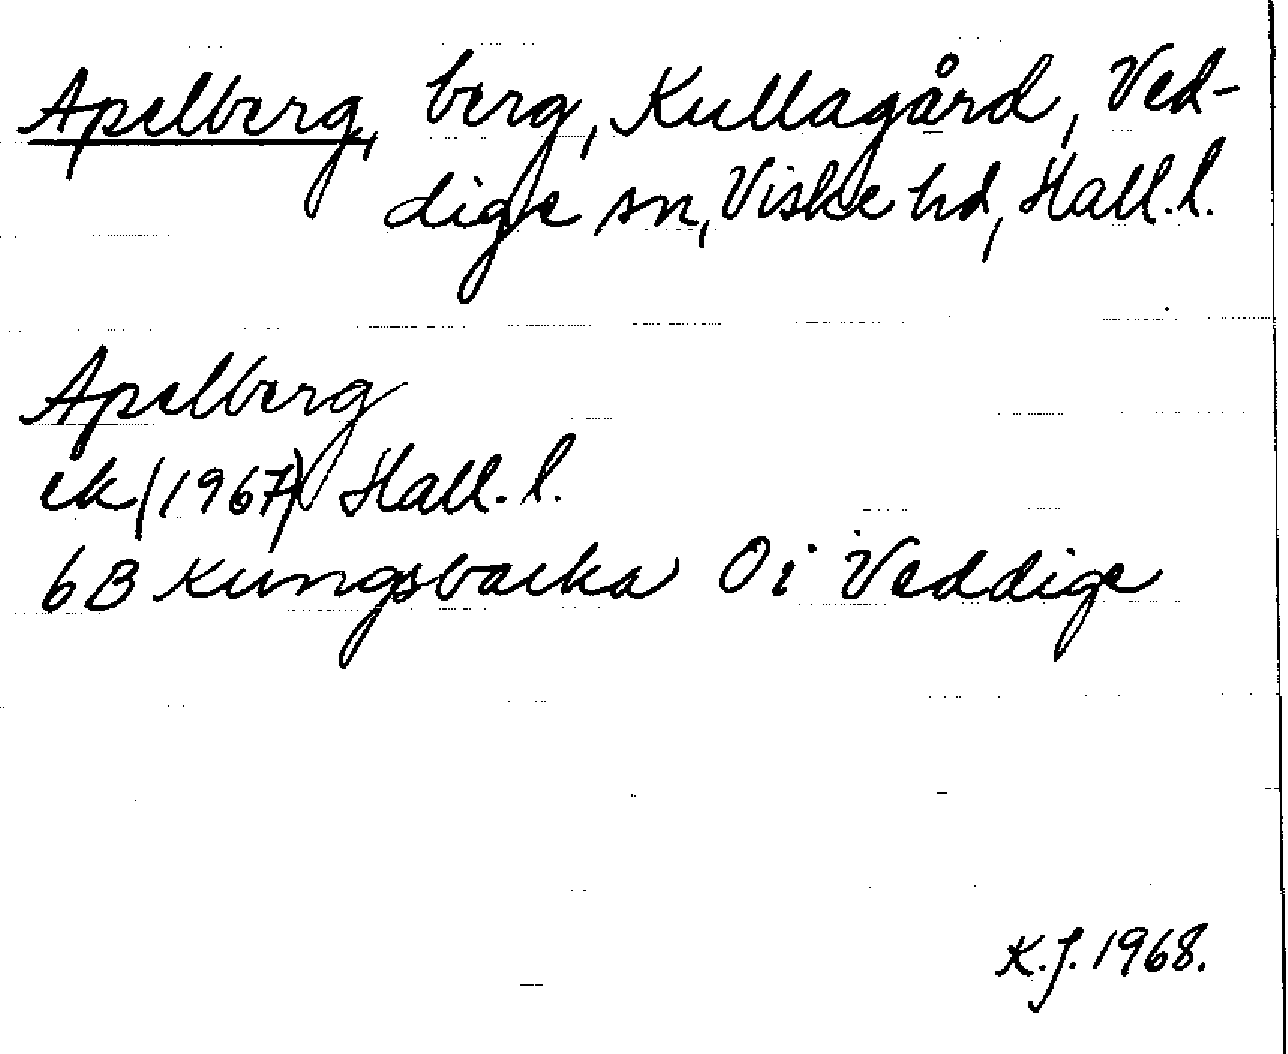 Apelberg, berg, Kullagård, Ved-
dige sn, Viske hd, Hall. l.
Apelberg
ek (1967) Hall. l.
6B Kungsbacka Oi Veddige
K.J. 1968.